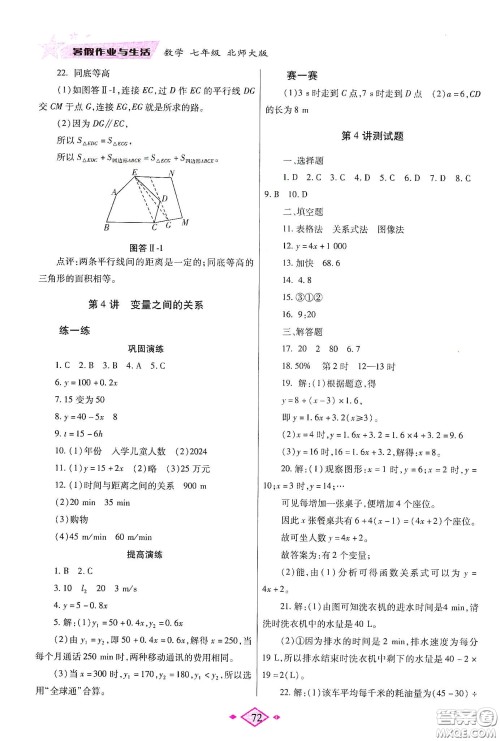 暑假作业与生活 数学 七年级 北师大版
22. 同底等高
(1)如图答Ⅱ-1,连接EC,过D作EC的平行线DG
交CM于点G,连接EG,EG就是所求的路。
(2)因为DG∥EC,
所以S△EDC=S△ECG,
所以S四边形ABCE=S四边形ABCE
E N
A D
B C G M
图答Ⅱ-1
点评:两条平行线间的距离是一定的;同底等高的
三角形的面积相等。
第4讲 变量之间的关系
练一练
巩固演练
1. C 2. B 3. C 4. D 5. C
6. y=100+0.2x
7. 15变为50
8. y=40-5x 8
9. t=15-6h
10. (1)年份 入学儿童人数 (2)2024
11. (1)y=15+2x (2)略 (3)25万元
12. (1)时间与距离之间的关系 900 m
(2)20 min 35 min
(3)购物
(4)45 m/min 60 m/min
提高演练
1. B 2. C
3. 10 l₂ 20 3
4. y=5-0.8x
5. 解:(1)y₁=50+0.4x,y₂=0.6x。
(2)由y₁=y₂,即50+0.4x=0.6x,得x=250。当
每个月通话250 min时,两种移动通讯的费用相同。
(3)当x=300时,y₁=170,y₂=180,y₁<y₂,所以选
用“全球通”合算。
赛一赛
(1)3 s时走到C点,7 s时走到D点 (2)a=6,CD
的长为8 m
第4讲测试题
一、选择题
1. D 2. C 3. D 4. D 5. C 6. D 7. C 8. C
9. B 10. D
二、填空题
11. 表格法 关系式法 图像法
12. y=4x+1 000
13. 加快 68.6
14. 4.8
15. ③①②
16. 9:20
三、解答题
17. 20 2 80 6.2
18. 52% 第2时 12—13时
19. 解:(1)根据题意,得
y=8+(x-3)×1.6,
即y=1.6x+3.2(x≥3)。
(2)当x=4时,y=1.6×4+3.2=9.6。
(3)y=16,即1.6x+3.2=16,解得x=8。
20. 解:(1)观察图形:x=1时,y=6,x=2时,y=
10;x=3时,y=14;…
可见每增加一张桌子,便增加4个座位。
因此x张餐桌共有6+4(x-1)=4x+2个座位。
故可坐人数y=4x+2。
故答案为:有2个变量;
(2)能,由(1)分析可得函数关系式可以为y=
4x+2。
21. 解:(1)由图可知洗衣机的进水时间是4 min,清
洗时洗衣机中的水量是40 L。
(2)①因为排水的时间是2 min,排水速度为每分
钟19 L,排水结束时洗衣机中剩下的水量是40-2×
19=2(L)。
22. 解:(1)该车平均每千米的耗油量为(45-30)÷
72